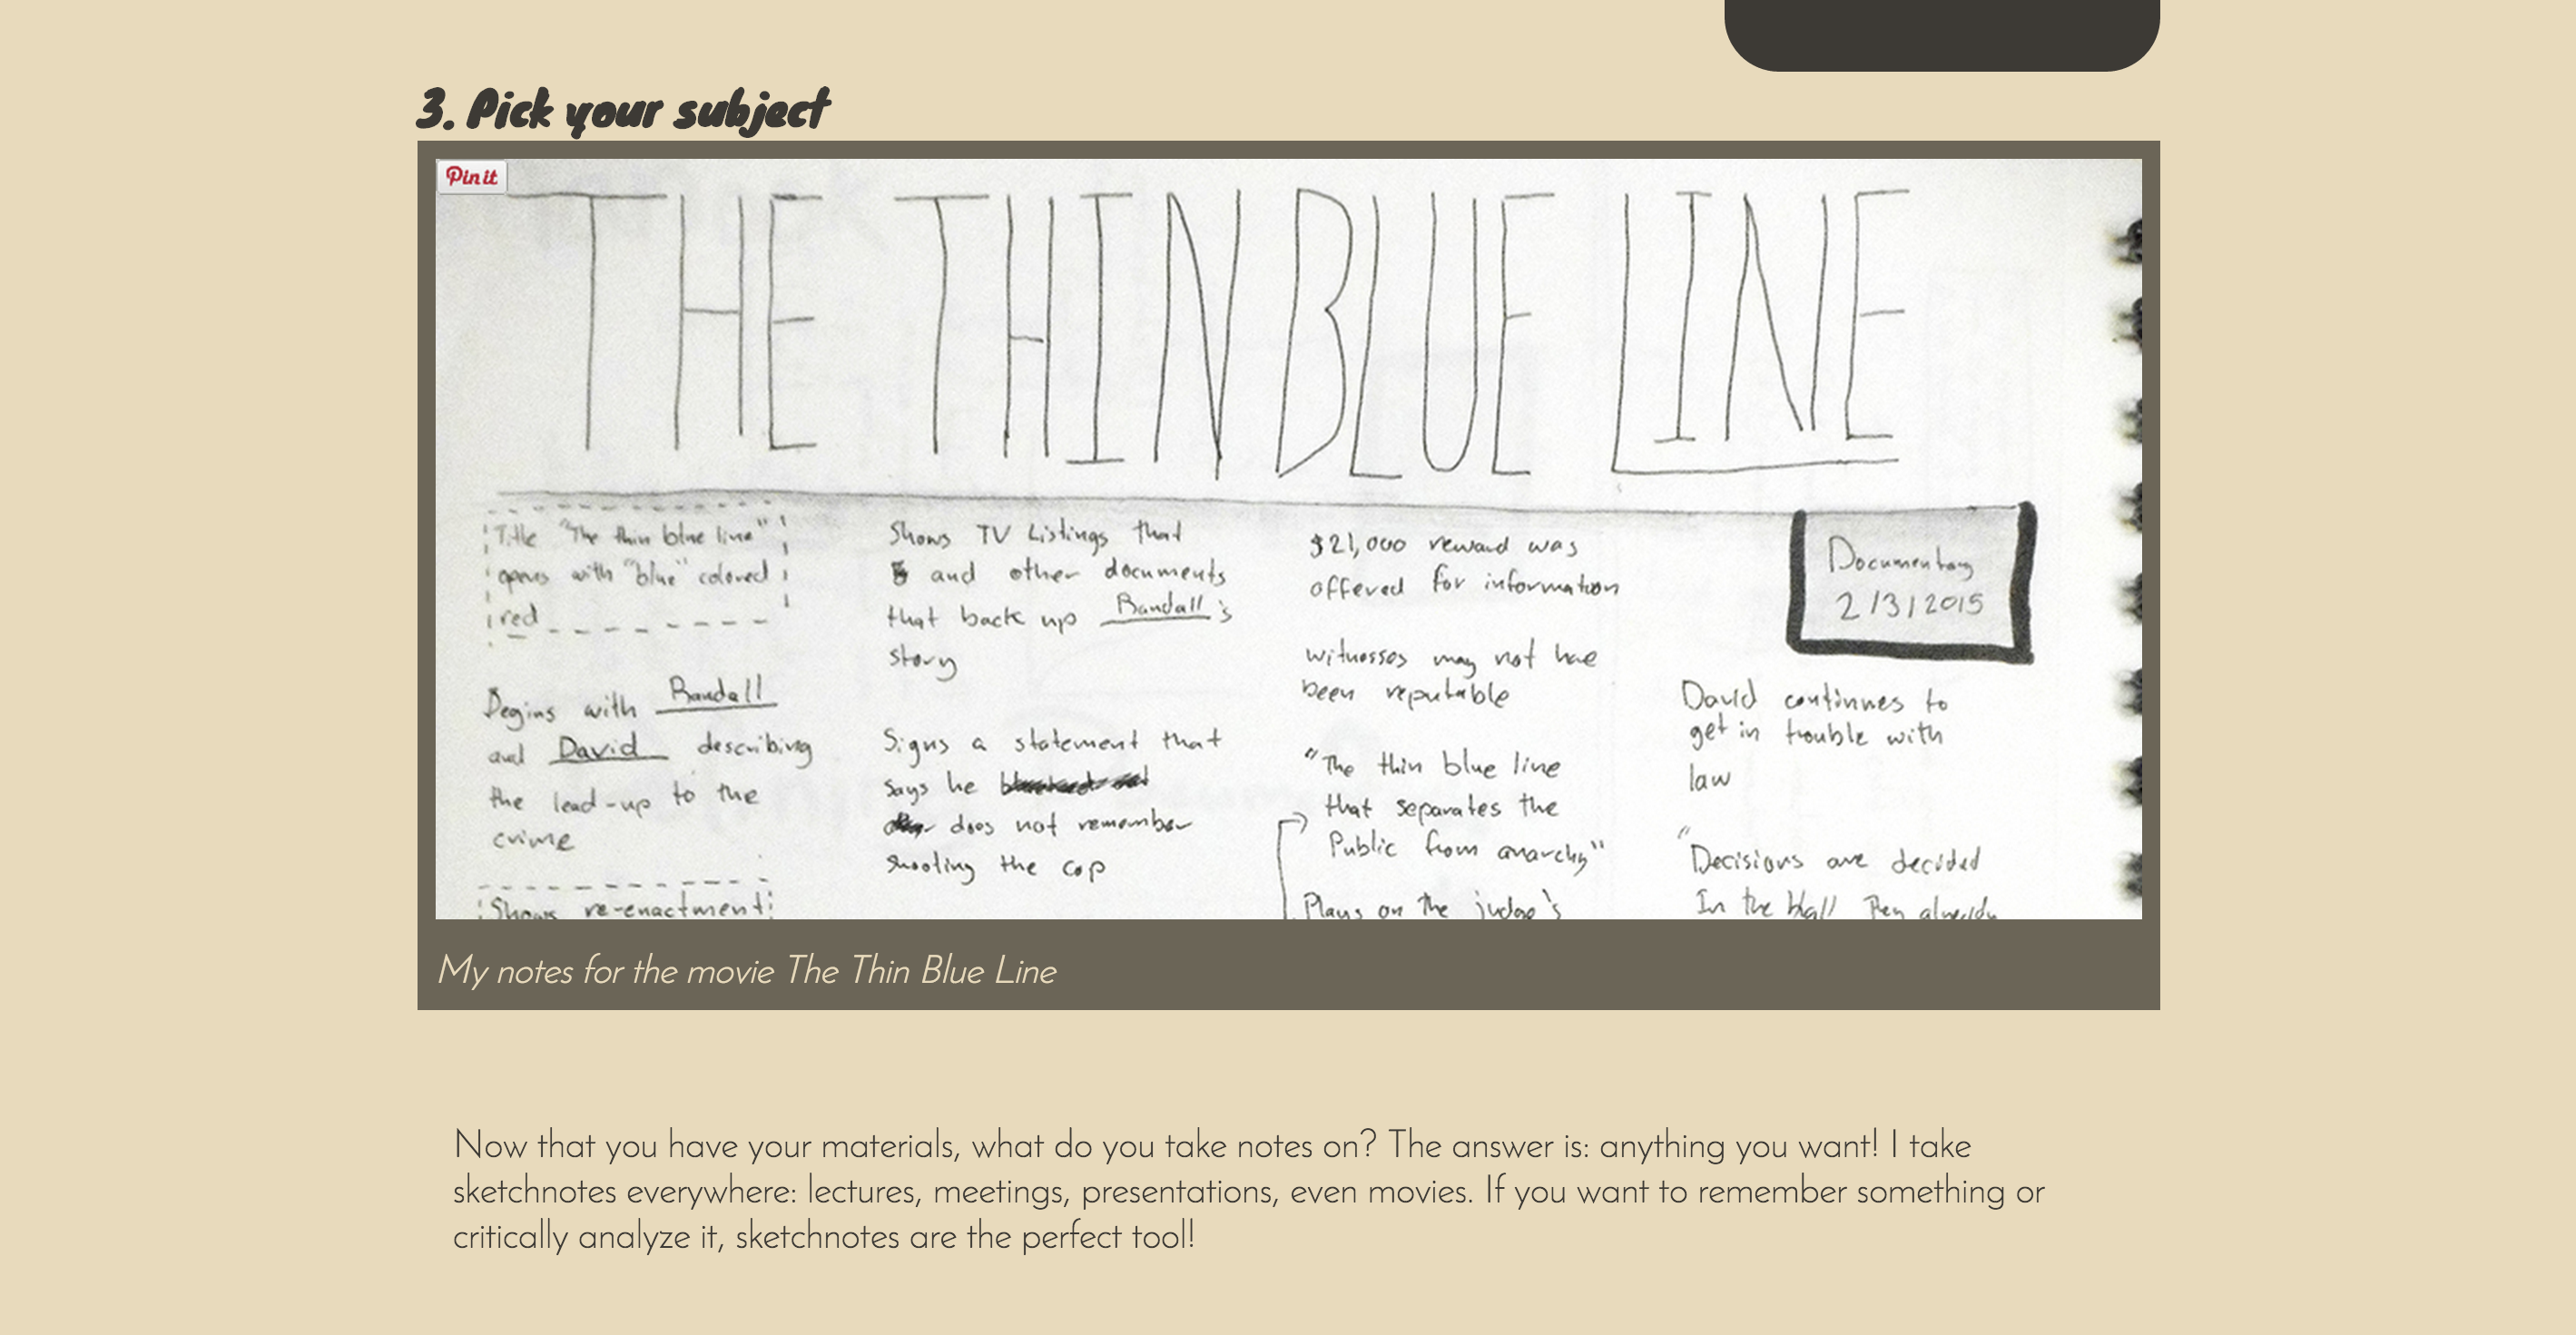 3. Pick your subject
Pin it
THE THIN BLUE LINE
Title "The thin blue line"
opens with "blue" colored
red
Begins with Randall
and David describing
the lead-up to the
crime
Shows re-enactment
Shows TV Listings that
and other documents
that back up Randall's
story
Signs a statement that
says he
does not remember
shooting the cop
$21,000 reward was
offered for information
witnesses may not have
been reputable
"The thin blue line
that separates the
Public from anarchy"
Plays on the judge's
Documentary
2/3/2015
David continues to
get in trouble with
law
"Decisions are decided
In the Hall They already
My notes for the movie The Thin Blue Line
Now that you have your materials, what do you take notes on? The answer is: anything you want! I take
sketchnotes everywhere: lectures, meetings, presentations, even movies. If you want to remember something or
critically analyze it, sketchnotes are the perfect tool!